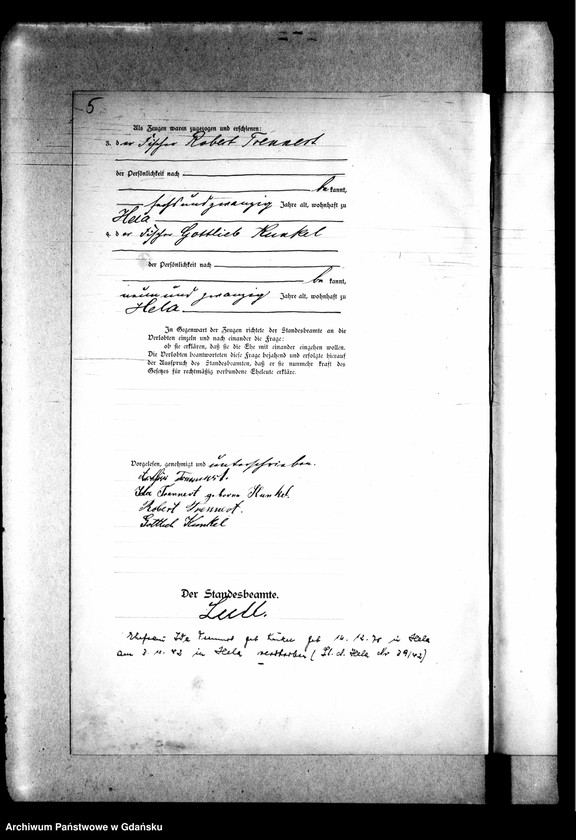 5
Als Zeugen waren zugezogen und erschienen:
3. der Fischer Robert Trennert
der Persönlichkeit nach
bekannt,
sechsundzwanzig Jahre alt, wohnhaft zu
Hela
4. der Fischer Gottlieb Kunkel
der Persönlichkeit nach
bekannt,
neunundzwanzig Jahre alt, wohnhaft zu
Hela
In Gegenwart der Zeugen richtete der Standesbeamte an die
Verlobten einzeln und nach einander die Frage:
ob sie erklären, daß sie die Ehe mit einander eingehen wollen.
Die Verlobten beantworteten diese Frage bejahend und erfolgte hierauf
der Ausspruch des Standesbeamten, daß er sie nunmehr kraft des
Gesetzes für rechtmäßig verbundene Eheleute erkläre.
Vorgelesen, genehmigt und unterschrieben.
Trennert.
Ida Trennert geborene Kunkel.
Robert Trennert.
Gottlieb Kunkel
Der Standesbeamte.
Ehefrau Ida Trennert geb. geb. 14.12. in Hela
am 3. 11. 43 in Hela verstorben (St. A. Hela Nr 39/43)
Archiwum Państwowe w Gdańsku